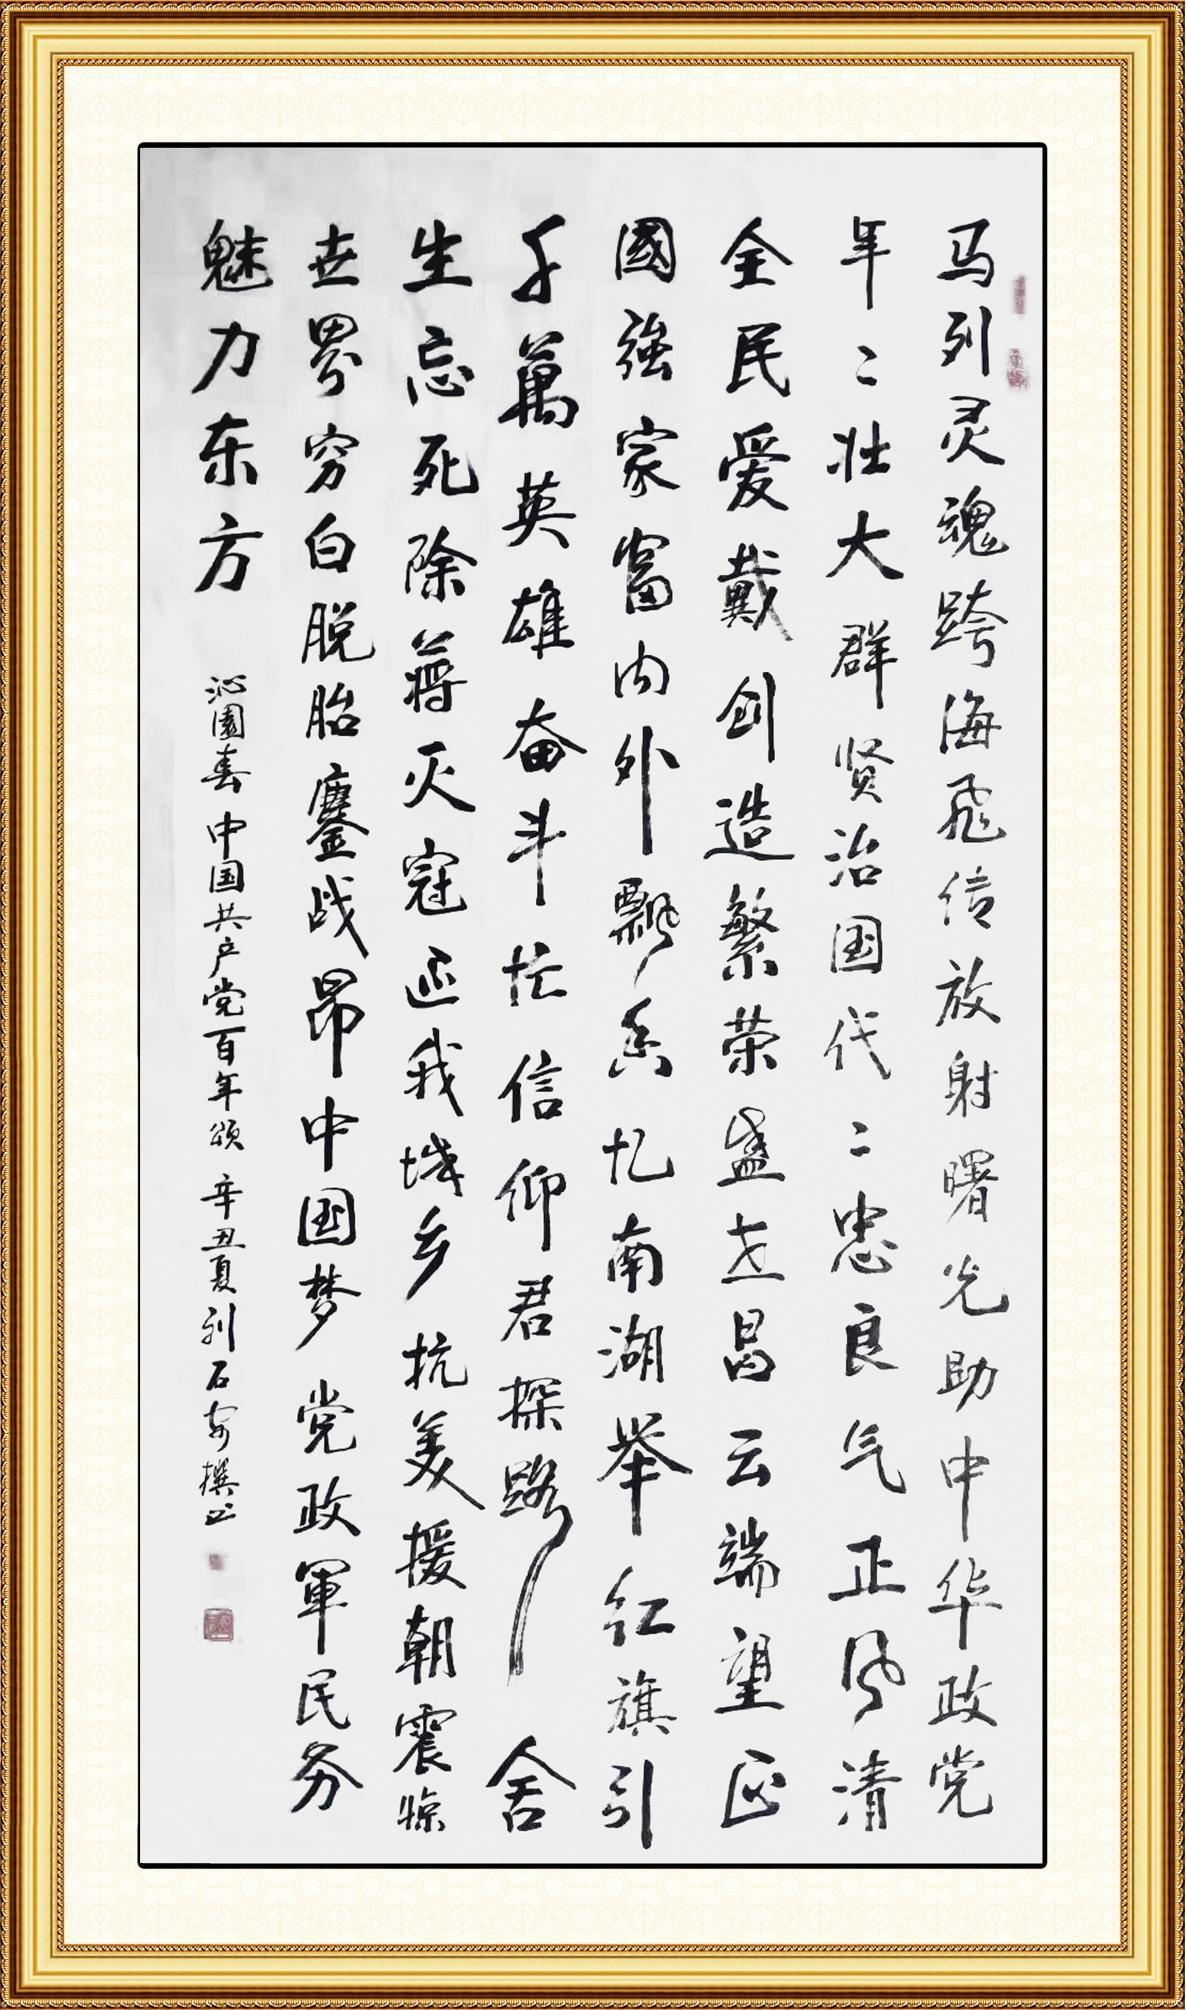 马列灵魂跨海飛传放射曙光助中华政党
年々壮大群贤治国代々忠良气正风清
全民爱戴创造繁荣盛世昌云端望正
國強家富内外飘香忆南湖举红旗引
千萬英雄奋斗忙信仰君探路 舍
生忘死除蒋灭寇还我城乡抗美援朝震惊
世界穷白脱胎鏖战昂中国梦党政軍民务
魅力东方
沁園春 中国共产党百年颂 辛丑夏列石撰书